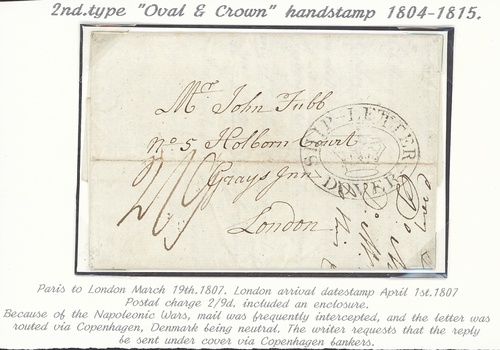 2nd.type "Oval & Crown" handstamp 1804-1815.
Mr John Tubb
No 5 Holborn Court
Grays Inn
London
2/9
SHIP-LETTER
DOVER
Paris to London March 19th.1807. London arrival datestamp April 1st.1807
Postal charge 2/9d. included an enclosure.
Because of the Napoleonic Wars, mail was frequently intercepted, and the letter was
routed via Copenhagen, Denmark being neutral. The writer requests that the reply
be sent under cover via Copenhagen bankers.